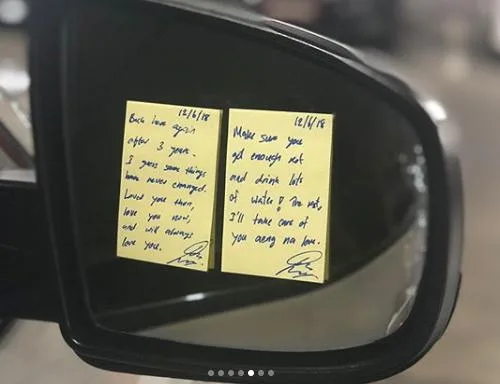 12/6/18
Back here again
after 3 years.
I guess some things
have never changed.
Loved you then,
love you now,
and will always
love you.
12/6/18
Make sure you
get enough rest
and drink lots
of water!
I'll take care of
you aeng na love.